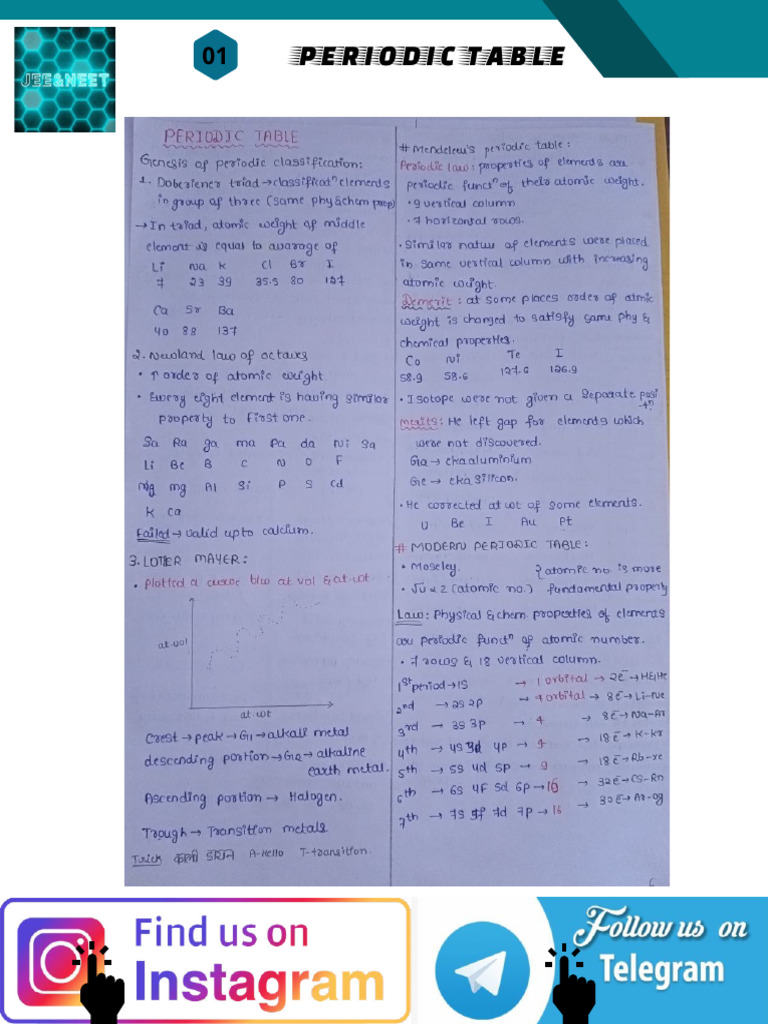 JEE&NEET
01
PERIODIC TABLE
PERIODIC TABLE
Genesis of periodic classification:
1. Doberiener triad → classificatⁿ elements
in group of three (same phy&chem prop)
→ In triad, atomic weight of middle
element is equal to avarage of
Li Na K Cl Br I
7 23 39 35.5 80 127
Ca Sr Ba
40 88 137
2. Newland law of octaves
• ↑ order of atomic weight
• Every eight element is having similar
property to first one.
Sa Ra ga ma Pa da Ni Sa
Li Be B C N O F
Mg Al Si P S Cd
K Ca
Failed → valid upto calcium.
3. LOTHER MAYER:
• Plotted a curve b/w at vol & at.wt
at.vol
at.wt
Crest → peak → G1 → alkali metal
descending portion → G2 → alkaline
earth metal.
Ascending portion → Halogen.
Trough → Transition metals
Trick काली डायन A-Hello T-transition.
# Mendeleev's periodic table:
Periodic law: properties of elements are
periodic funcⁿ of their atomic weight.
• 9 vertical column
• 7 horizontal rows.
• Similar nature of elements were placed
in same vertical column with increasing
atomic weight.
Demerit: at some places order of atmic
weight is changed to satisfy same phy &
chemical properties.
Co Ni Te I
58.9 58.6 127.6 126.9
• Isotope were not given a separate posi
-tⁿ
merits: He left gap for elements which
were not discovered.
Ga → ekaaluminium
Ge → eka silicon.
• He corrected at wt of some elements.
U Be I Au Pt
# MODERN PERIODIC TABLE:
• Moseley. } atomic no. is more
• √υ α Z (atomic no.) fundamental property
Law: Physical & chem. properties of elements
are periodic functⁿ of atomic number.
• 7 rows & 18 vertical column.
1st period → 1S → 1 orbital → 2e⁻ → H&He
2nd → 2S 2p → 4 orbital → 8e⁻ → Li-Ne
3rd → 3S 3p → 4 → 8e⁻ → Na-Ar
4th → 4S 3d 4p → 9 → 18e⁻ → K-Kr
5th → 5S 4d 5p → 9 → 18e⁻ → Rb-xe
6th → 6S 4F 5d 6p → 16 → 32e⁻ → CS-Rn
7th → 7S 5f 7d 7p → 16 → 30e⁻ → Ar-og
Find us on
Instagram
Follow us on
Telegram